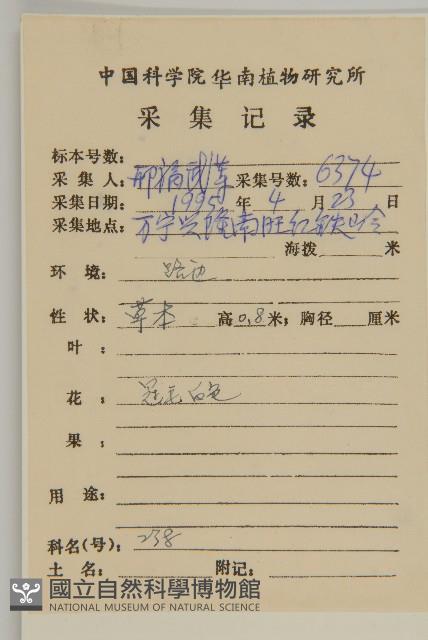 中国科学院华南植物研究所
采集记录
标本号数：
采集人：邢福武等 采集号数：6374
采集日期：1995年4月23日
采集地点：万宁兴隆南旺红铁岭
海拨 米
环境：路边
性状：草本 高0.8米；胸径 厘米
叶：
花：冠毛白色
果：
用途：
科名(号)：238
土名： 附记：
國立自然科學博物館
NATIONAL MUSEUM OF NATURAL SCIENCE